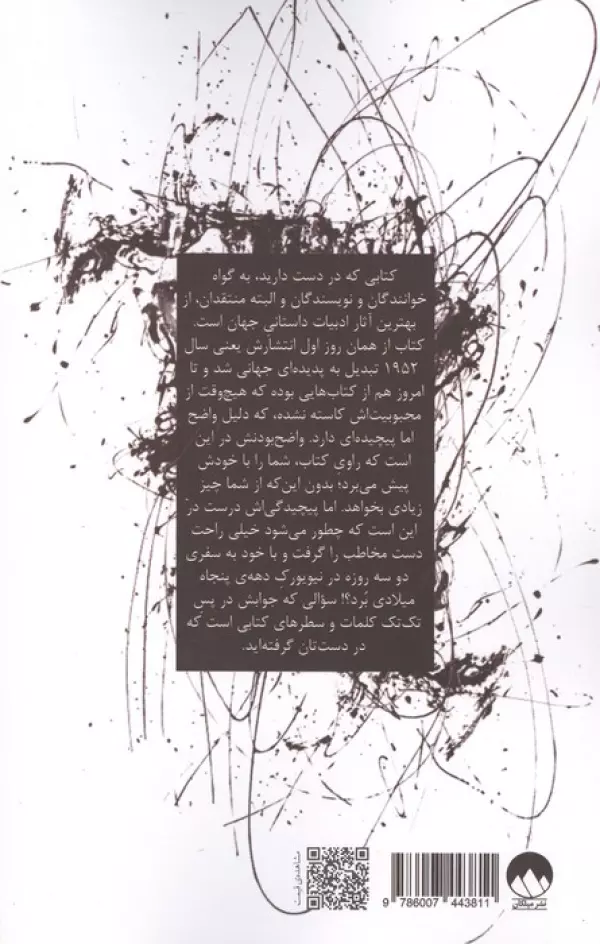 کتابی که در دست دارید، به گواه
خوانندگان و نویسندگان و البته منتقدان، از
بهترین آثار ادبیات داستانی جهان است.
کتاب از همان روز اول انتشارش یعنی سال
۱۹۵۲ تبدیل به پدیده‌ای جهانی شد و تا
امروز هم از کتاب‌هایی بوده که هیچ‌وقت از
محبوبیت‌اش کاسته نشده، که دلیل واضح
اما پیچیده‌ای دارد. واضح‌بودنش در این
است که راوی کتاب، شما را با خودش
پیش می‌برد؛ بدون این‌که از شما چیز
زیادی بخواهد. اما پیچیدگی‌اش درست در
این است که چطور می‌شود خیلی راحت
دست مخاطب را گرفت و با خود به سفری
دو سه روزه در نیویورکِ دهه‌ی پنجاه
میلادی بُرد؟! سؤالی که جوابش در پس
تک‌تک کلمات و سطرهای کتابی است که
در دست‌تان گرفته‌اید.
مشاهده‌ی قیمت
9 786007 443811
نشر میلکان